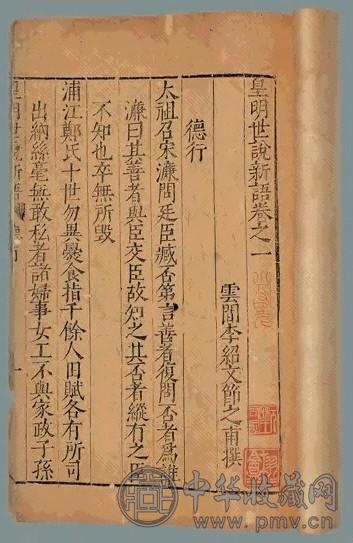 皇明世說新語卷之一
雲間李紹文節之甫撰
德行
太祖召宋濂問廷臣臧否第言善者復問否者爲誰
濂曰其善者與臣交臣故知之其否者縱有之臣
不知也卒無所毀
浦江鄭氏十世勿異爨食指千餘人田賦各有所司
出納絲毫無敢私者諸婦事女工不與家政子孫
皇明世說新語
中华收藏网
www.pmv.cn